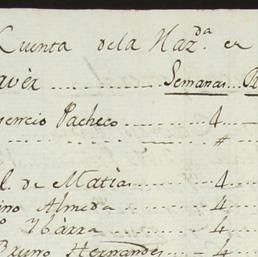 Cuenta dela Haz.da en
aver ........ Semanas.. R
encio Pacheco ........ 4 ...
........ # ...
l. de Matìas ........ 4 ...
ino Almeda ........ 4 ...
o Ybàrra ........ 4 ...
Bruno Hernandes ........ 4 ...